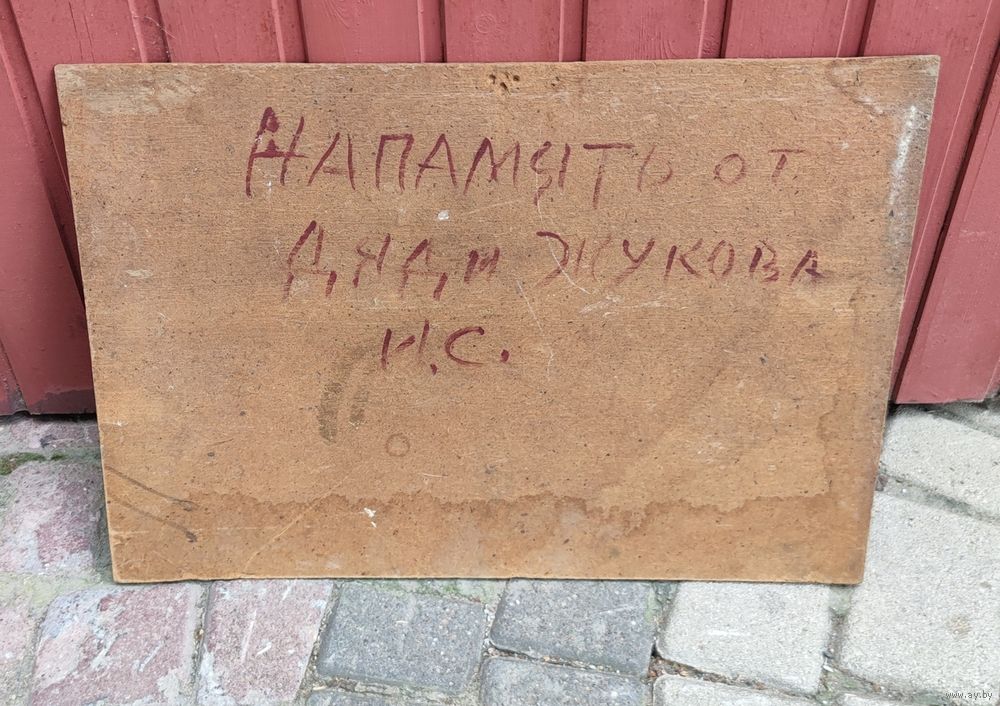 НАПАМЯТЬ ОТ
ДЯДИ ЖУКОВА
И.С.
www.ay.by